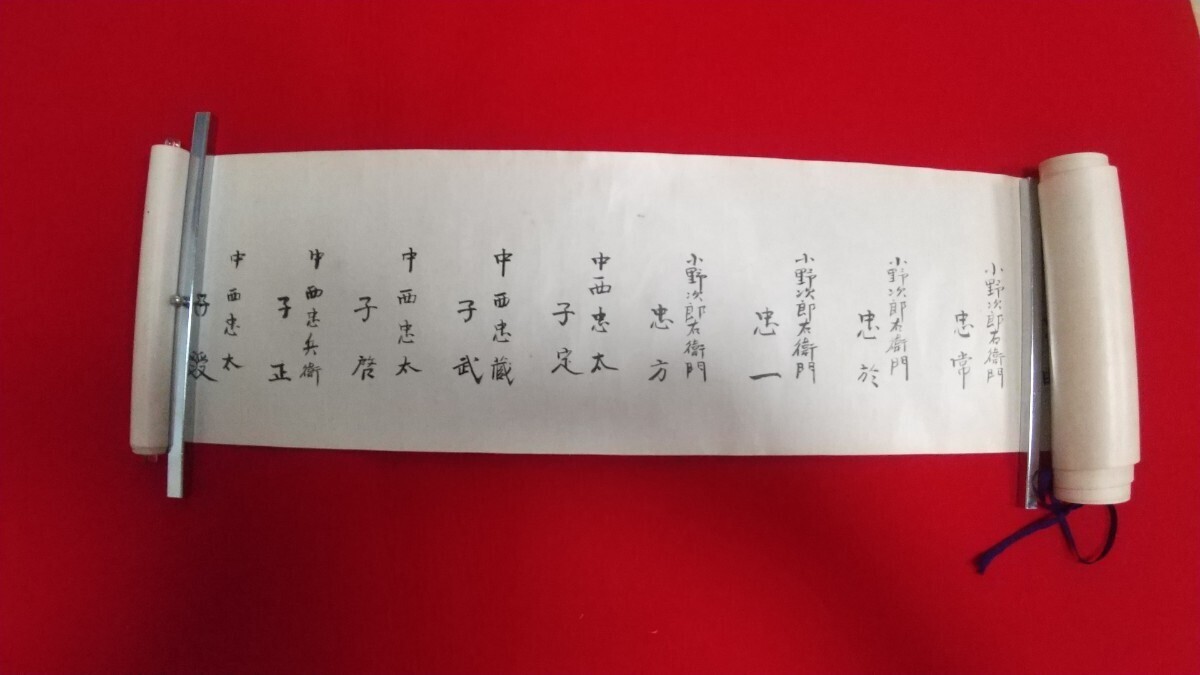 小野次郎右衛門
忠常
小野次郎右衛門
忠於
小野次郎右衛門
忠一
小野次郎右衛門
忠方
中西忠太
子定
中西忠蔵
子武
中西忠太
子啓
中西忠兵衛
子正
中西忠太
子受